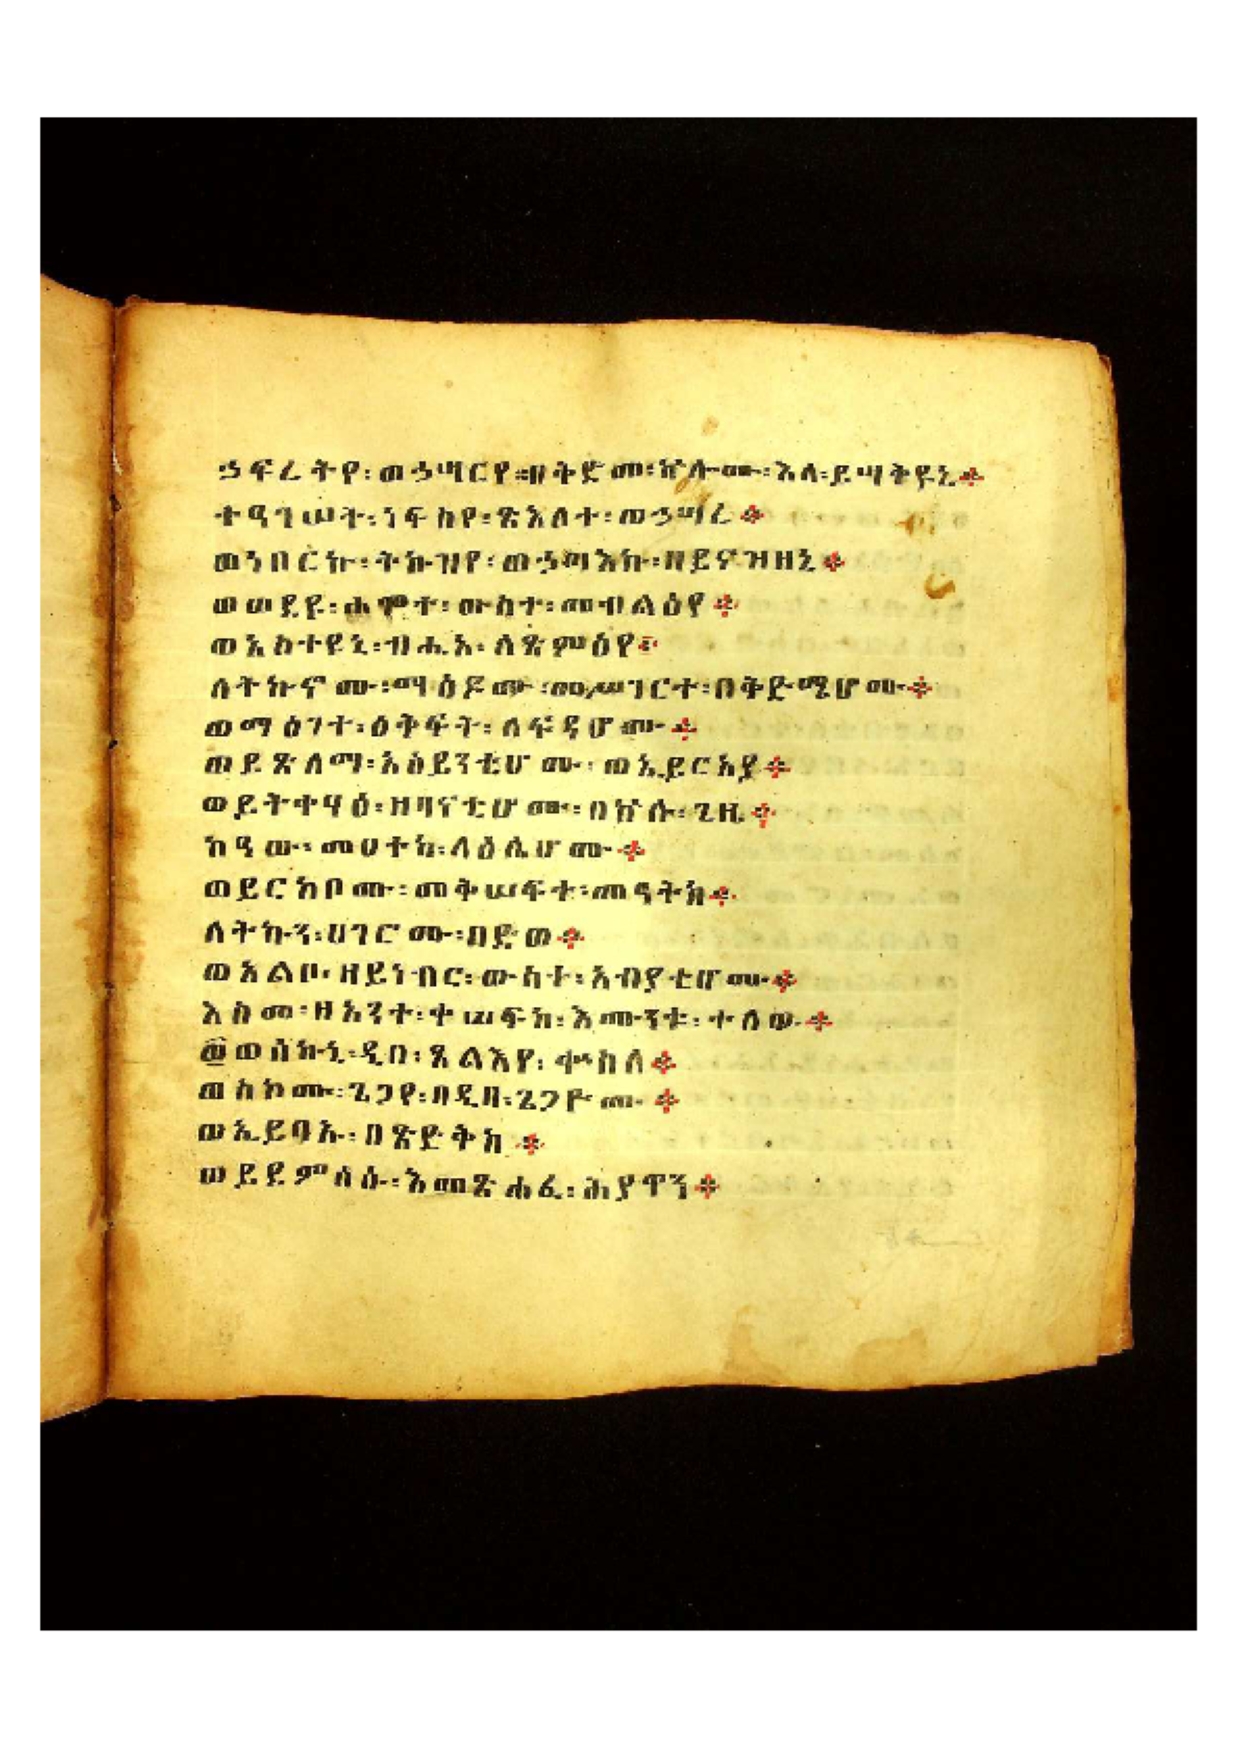 ኃፍረትየ፡ወኃሣርየ፡በቅድመ፡ኵሉሙ፡እለ፡ይሣቅዩኒ፨
ተዓገሠት፡ነፍስየ፡ጽእለተ፡ወኃሣረ፨
ወነበርኩ፡ትኩዝየ፡ወኃጣእኩ፡ዘይናዝዘኒ፨
ወወደዩ፡ሐሞተ፡ውስተ፡መብልዕየ፨
ወአስተዩኒ፡ብሒአ፡ለጽምዕየ፨
ለትኩኖሙ፡ማዕዶሙ፡መሥገርተ፡በቅድሜሆሙ፨
ወማዕገተ፡ዕቅፍት፡ለፍዳሆሙ፨
ወይጽለማ፡አዕይንቲሆሙ፡ወኢይርአያ፨
ወይትቀሃዕ፡ዘባናቲሆሙ፡በኵሉ፡ጊዜ፨
ከዓው፡መሀተከ፡ላዕሌሆሙ፨
ወይርከቦሙ፡መቅሠፍተ፡መዓትከ፨
ለትኩን፡ሀገሮሙ፡በድወ፨
ወአልቦ፡ዘይነብር፡ውስተ፡አብያቲሆሙ፨
እስመ፡ዘአንተ፡ቀሠፍከ፡እሙንቱ፡ተለው፨
ወሰኩኒ፡ዲበ፡ጼልእየ፡ቍስለ፨
ወስኮሙ፡ጌጋየ፡በዲበ፡ጌጋዮሙ፨
ወኢይባኡ፡በጽድቅከ፨
ወይደምሰሱ፡እመጽሐፈ፡ሕያዋን፨